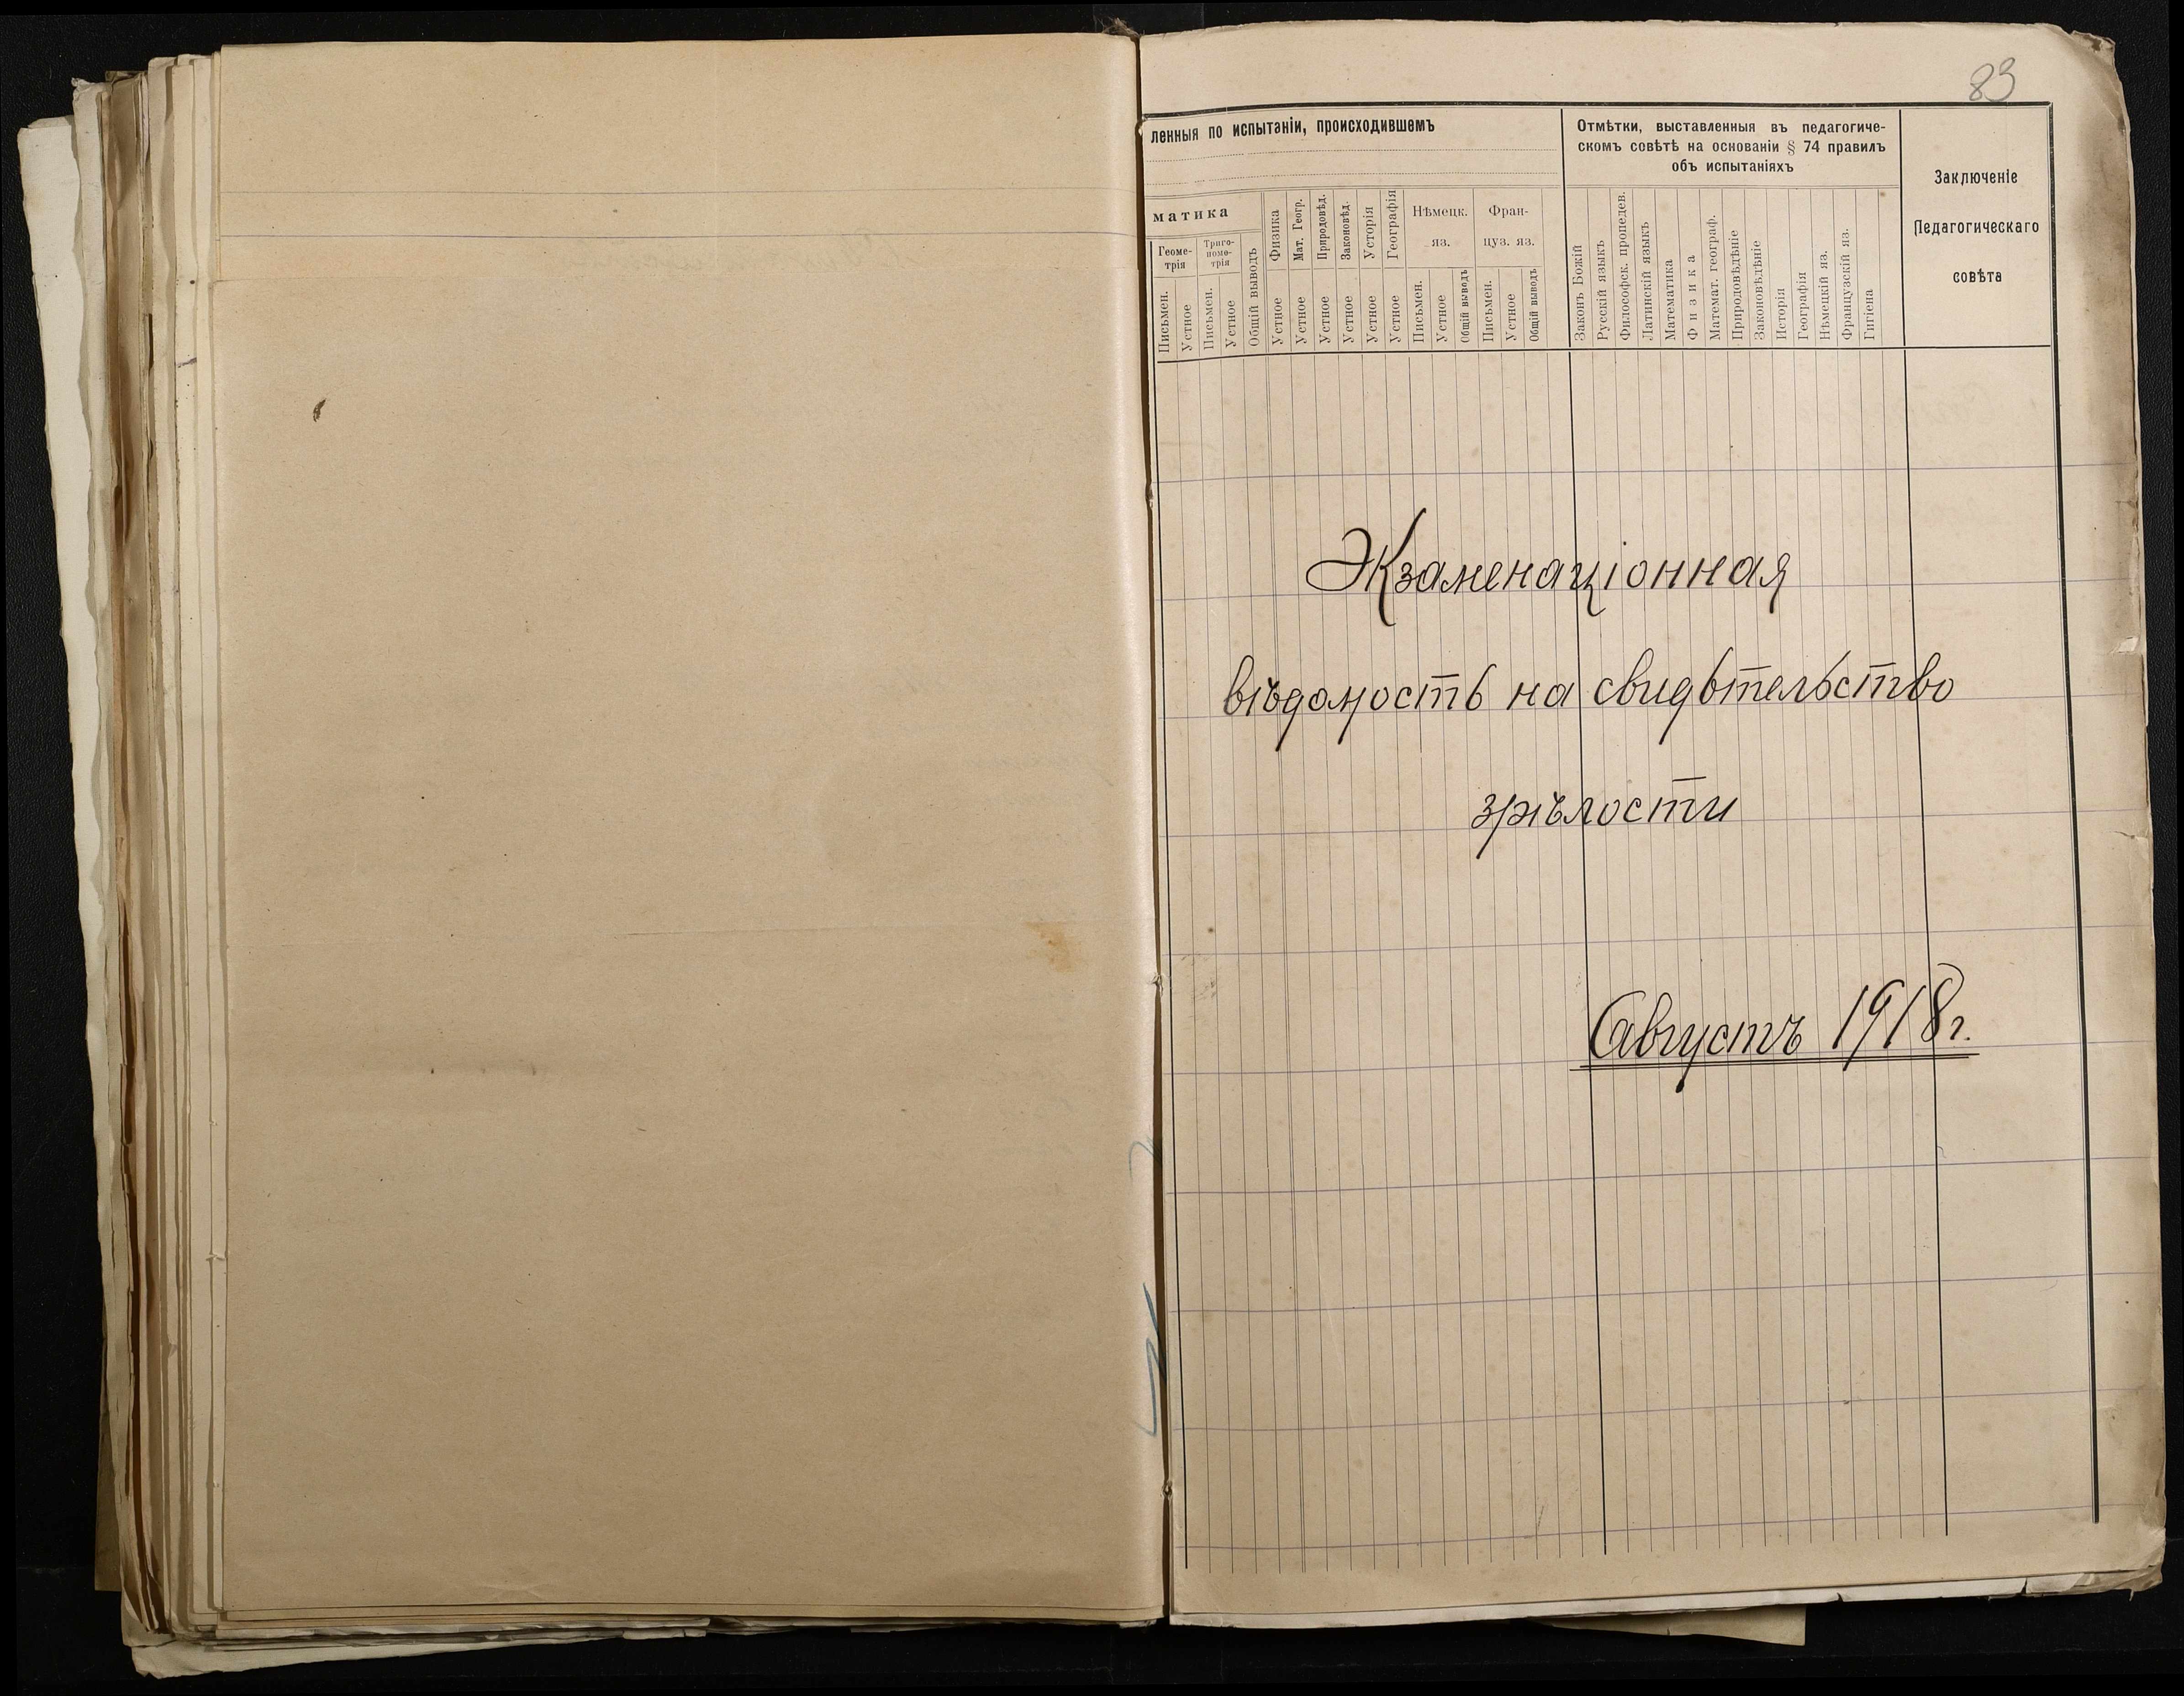 83
ленныя по испытаніи, происходившемъ
матика
Геоме-
трія
Триго-
номе-
трія
Письмен.
Устное
Письмен.
Устное
Общій выводъ
Физика
Устное
Мат. Геогр.
Устное
Природовѣд.
Устное
Законовѣд.
Устное
Усторія
Устное
Географія
Устное
Нѣмецк.
яз.
Письмен.
Устное
Общій выводъ
Фран-
цуз. яз.
Письмен.
Устное
Общій выводъ
Отмѣтки, выставленныя въ педагогиче-
скомъ совѣтѣ на основаніи § 74 правилъ
объ испытаніяхъ
Законъ Божій
Русскій языкъ
Философск. пропедев.
Латинскій языкъ
Математика
Физика
Математ. географ.
Природовѣдѣніе
Законовѣдѣніе
Исторія
Географія
Нѣмецкій яз.
Французскій яз.
Гигіена
Заключеніе
Педагогическаго
совѣта
Экзаменаціонная
вѣдомость на свидѣтельство
зрѣлости
Августъ 1918 г.